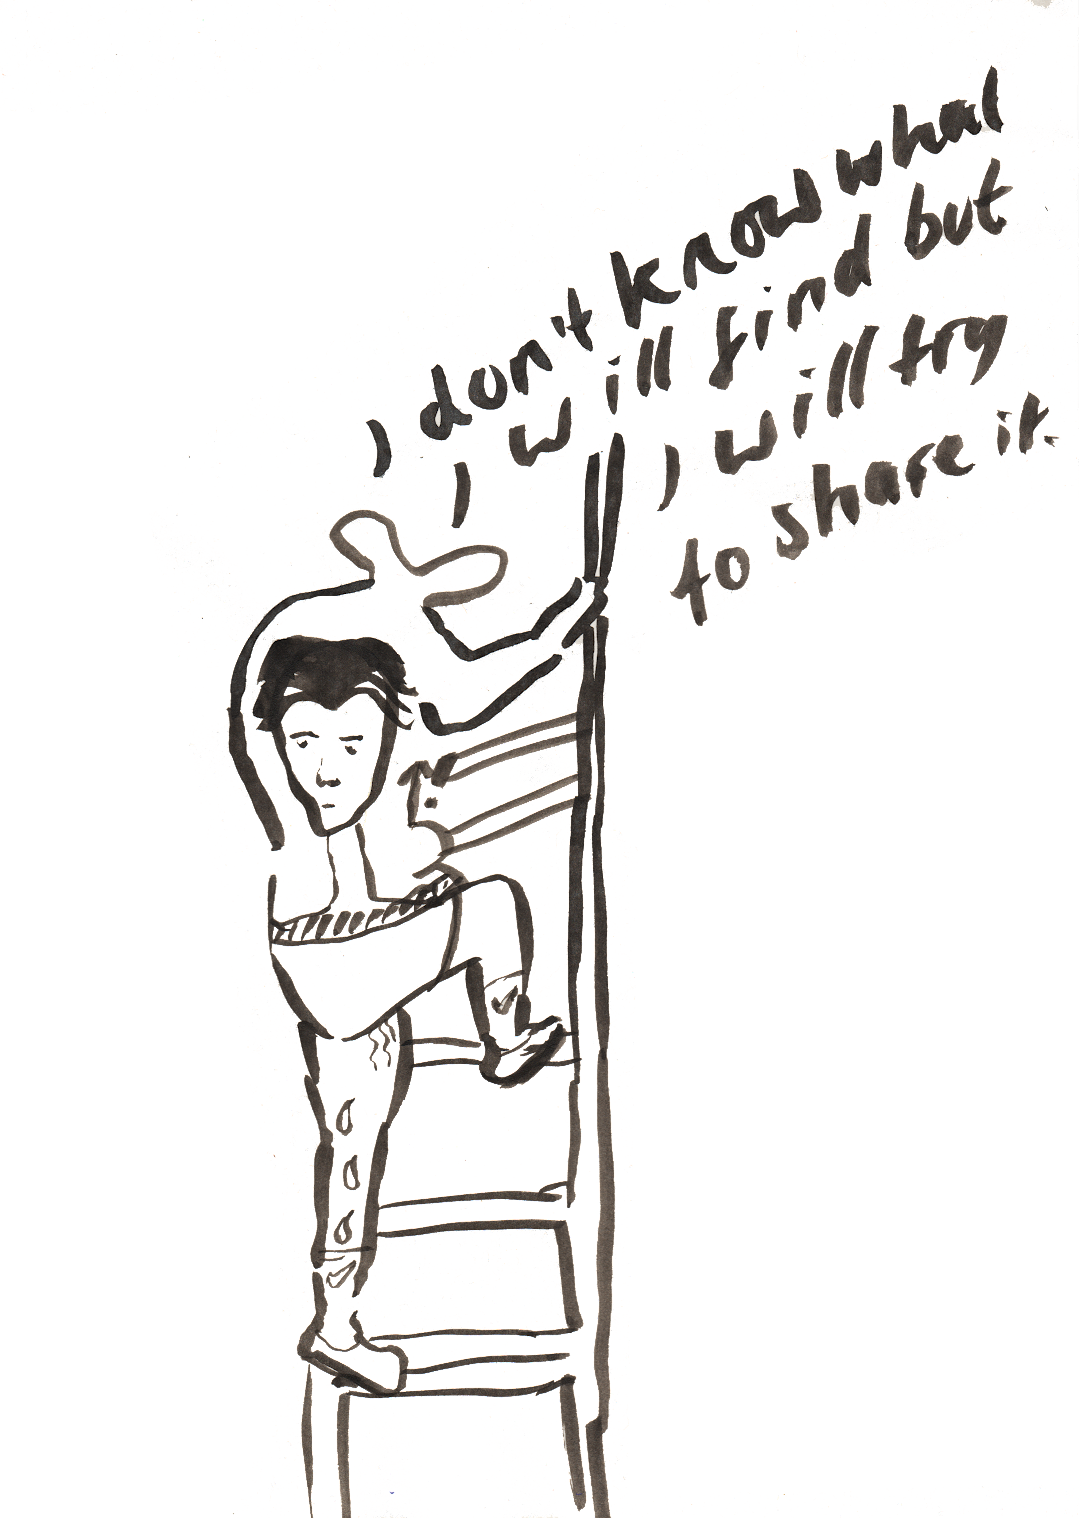 I don't know what
I will find but
I will try
to share it.